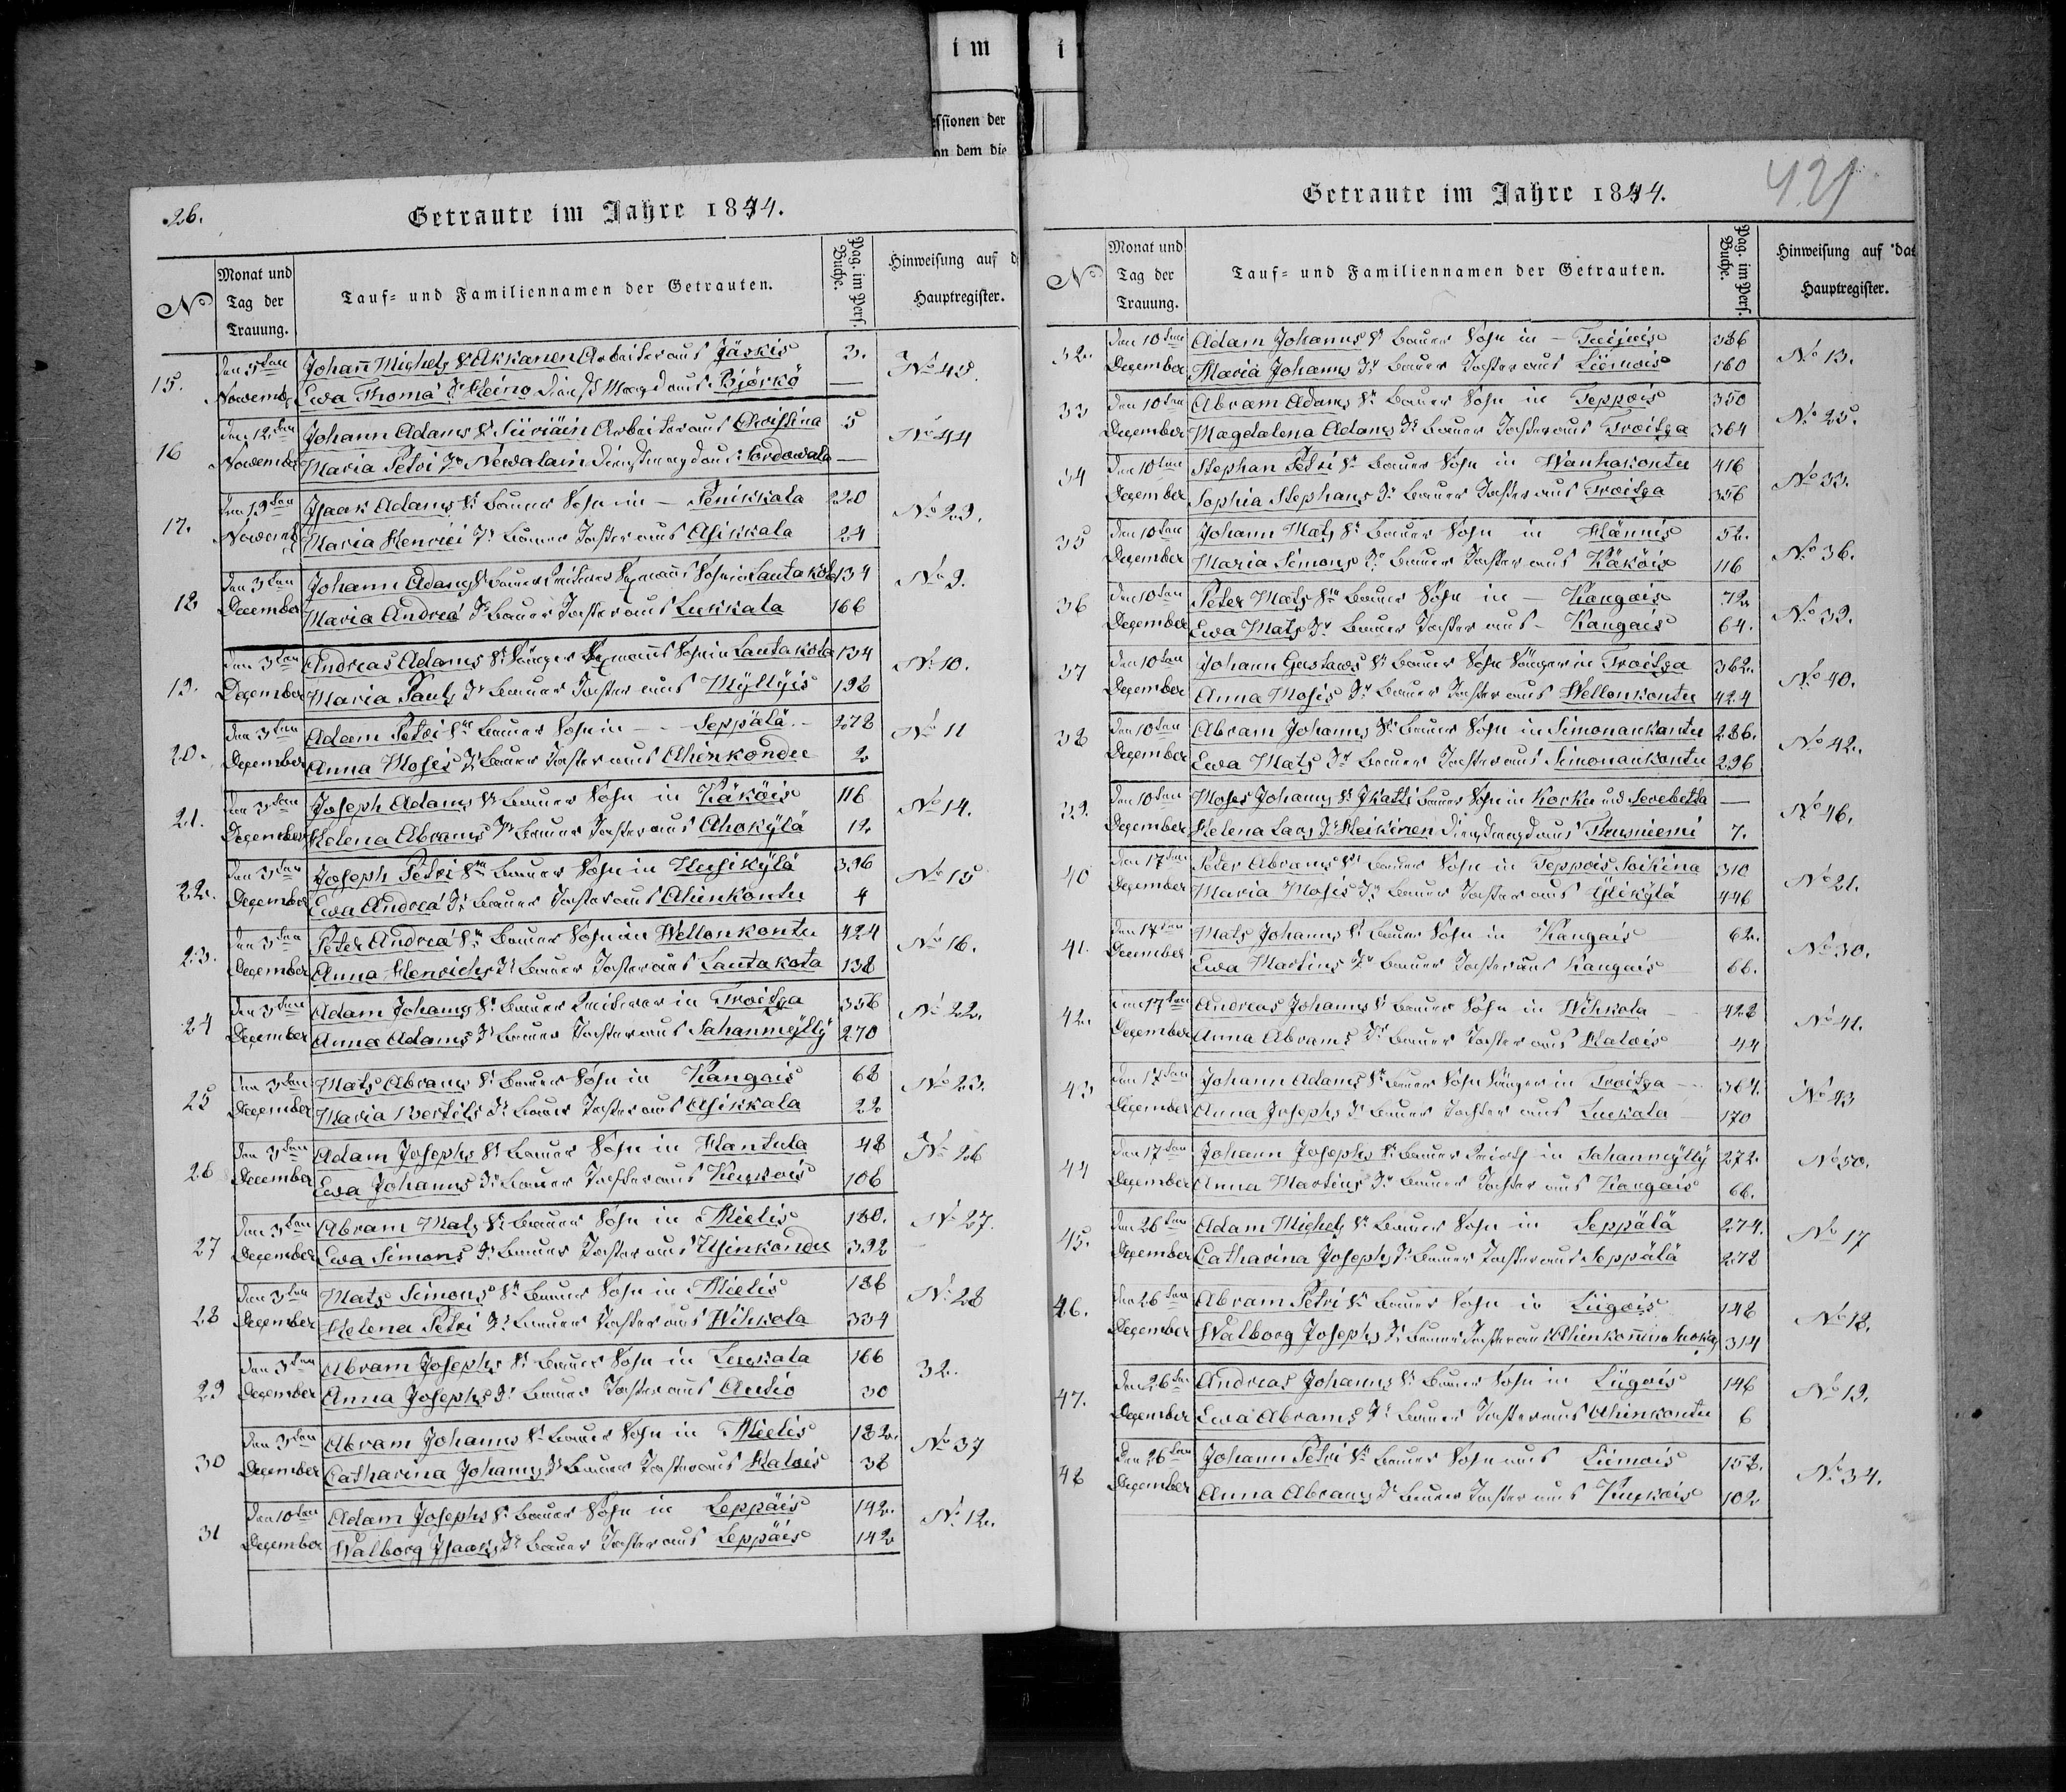 im
i
essionen der
on dem die
26.
Getraute im Jahre 1844.
No
Monat und Tag der Trauung.
Tauf- und Familiennamen der Getrauten.
Pag. im Pers. Buche.
Hinweisung auf d
Hauptregister.
15. den 5ten Johann Michels S. Akkanen Arbeiter aus Jäskis 3. No 45.
Novemb Ewa Thoma Tr Heino Dienst Magd aus Björkö —
16 den 12ten Johann Adams S. Siiriäin Arbeiter aus Christina 5 No 44
November Maria Petri Tr Newalain Dienstmagd aus Sordowala —
17. den 19ten Isaak Adams Sn Bauer Sohn in — Penikkala 220 No 29.
Novemb Maria Henrici Tr Bauer Tochter aus Asikkala 24
18 den 3ten Johann Adams Sn Bauer Sohn in Lautakota 134 No 9.
December Maria Andreä Tr Bauer Tochter aus Lukkala 166
19. den 3ten Andreas Adams Sn Sohn in Lautakota 134 No 10.
December Maria Pauls Tr Bauer Tochter aus Myllyis 198
20. den 3ten Adam Petri Sn Bauer Sohn in — Seppälä — 278 No 11
December Anna Moses Tr Bauer Tochter aus Ahinkondu 2
21. den 3ten Joseph Adams Sn Bauer Sohn in Käköis 116 No 14.
December Helena Abrams Tr Bauer Tochter aus Ahokylä 12
22. den 3ten Joseph Petri Sn Bauer Sohn in Uusikylä 396 No 15
December Ewa Andreä Tr Bauer Tochter aus Ahinkontu 4
23. den 3ten Peter Andreä Sn Bauer Sohn in Wellonkontu 424 No 16.
December Anna Henrichs Tr Bauer Tochter aus Lautakota 138
24 den 3ten Adam Johanns Sn Bauer in Troitza 356 No 22.
December Anna Adams Tr Bauer Tochter aus Sahanmylly 270
25 den 3ten Mats Abrams Sn Bauer Sohn in Kangais 68 No 23.
December Maria Bertils Tr Bauer Tochter aus Asikkala 22
26 den 3ten Adam Josephs Sn Bauer Sohn in Hantula 48 No 26
December Ewa Johanns Tr Bauer Tochter aus Kuxkois 106
27 den 3ten Abram Mats Sn Bauer Sohn in Mielis 180. No 27.
December Ewa Simons Tr Bauer Tochter aus Usinkondu 392
28 den 3ten Mats Simons Sn Bauer Sohn in Mielis 186 No 28
December Helena Petri Tr Bauer Tochter aus Wihkola 334
29 den 3ten Abram Josephs Sn Bauer Sohn in Luukala 166 32.
December Anna Josephs Tr Bauer Tochter aus Autio 30
30 den 3ten Abram Johanns Sn Bauer Sohn in Mielis 182. No 37
December Catharina Johanns Tr Bauer Tochter aus Halois 38
31 den 10ten Adam Josephs Sn Bauer Sohn in Leppäis 142. No 12.
December Walborg Isaaks Tr Bauer Tochter aus Leppäis 142
421
Getraute im Jahre 1844.
No
Monat und Tag der Trauung.
Tauf- und Familiennamen der Getrauten.
Pag. im Pers. Buche.
Hinweisung auf das
Hauptregister.
32. den 10ten Adam Johanns Sn Bauer Sohn in — 386 No 13.
December Maria Johanns Tr Bauer Tochter aus Liemois 160
33 den 10ten Abram Adams Sn Bauer Sohn in Teppois 350 No 25.
December Magdalena Adams Tr Bauer Tochter aus Troitza 364
34 den 10ten Stephan Petri Sn Bauer Sohn in Wanhakontu 416 No 33.
December Sophia Stephans Tr Bauer Tochter aus Troitza 356
35 den 10ten Johann Mats Sn Bauer Sohn in Männis 52. No 36.
December Maria Simons Tr Bauer Tochter aus Käköis 116
36 den 10ten Peter Mats Sn Bauer Sohn in — Kangais 72 No 39.
December Ewa Mats Tr Bauer Tochter aus — Kangais 64.
37 den 10ten Johann Gustaws Sn Bauer Sohn Sänger in Troitza 362. No 40.
December Anna Moses Tr Bauer Tochter aus Wellonkontu 424
38 den 10ten Abram Johanns Sn Bauer Sohn in Simonankontu 286. No 42.
December Ewa Mats Tr Bauer Tochter aus Simonankontu 296
39. den 10ten Moses Johanns Sn Bauer Sohn in Korka und Serebetta — No 46.
December Helena Lars Tr Heikinen Dienstmagd aus 7.
40 den 17ten Peter Abrams Sn Bauer Sohn in Teppois Soikina 310 No 21.
December Maria Moses Tr Bauer Tochter aus Ylikylä 446
41. den 17ten Mats Johanns Sn Bauer Sohn in Kangais 62. No 30.
December Ewa Martins Tr Bauer Tochter aus Kangais 66.
42. den 17ten Andreas Johanns Sn Bauer Sohn in Wihkola 422 No 41.
December Anna Abrams Tr Bauer Tochter aus Halois 44
43 den 17ten Johann Adams Sn Bauer Sohn Sänger in Troitza — 364. No 43
December Anna Josephs Tr Bauer Tochter aus Luukala 170
44 den 17ten Johann Josephs Sn Bauer in Sahanmylly 272. No 50.
December Anna Martins Tr Bauer Tochter aus Kangais 66.
45. den 26ten Adam Michels Sn Bauer Sohn in Seppälä 274. No 17
December Catharina Josephs Tr Bauer Tochter aus Seppälä 278
46. den 26ten Abram Petri Sn Bauer Sohn in Liigois 148 No 18.
December Walborg Josephs Tr Bauer Tochter aus 314
47. den 26ten Andreas Johanns Sn Bauer Sohn in Liigois 146 No 19.
December Ewa Abrams Tr Bauer Tochter aus Ahinkontu 6
48 den 26ten Johann Petri Sn Bauer Sohn aus Liemois 158. No 34.
December Anna Abrams Tr Bauer Tochter aus Kuxkois 102